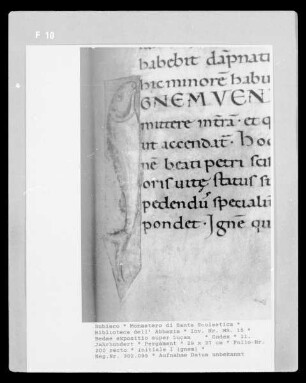 F 10
habebit dāpnati
hic minorē habu
GNEM UEN
mittere intrā · et q
ut accendat̄ · hoc
nē beati petri
oris uitę status
pedendū speciali
pondet · Ignē qu
Subiaco * Monastero di Santa Scolastica *
Biblioteca dell' Abbazia * Inv. Nr. MS. 18 *
Bedae expositio super Lucam * Codex * 11.
Jahrhundert * Pergament * 26 x 37 cm * Folio-Nr.
202 recto * Initiale I (gnem) *
Neg.Nr. 902.096 * Aufnahme Datum unbekannt